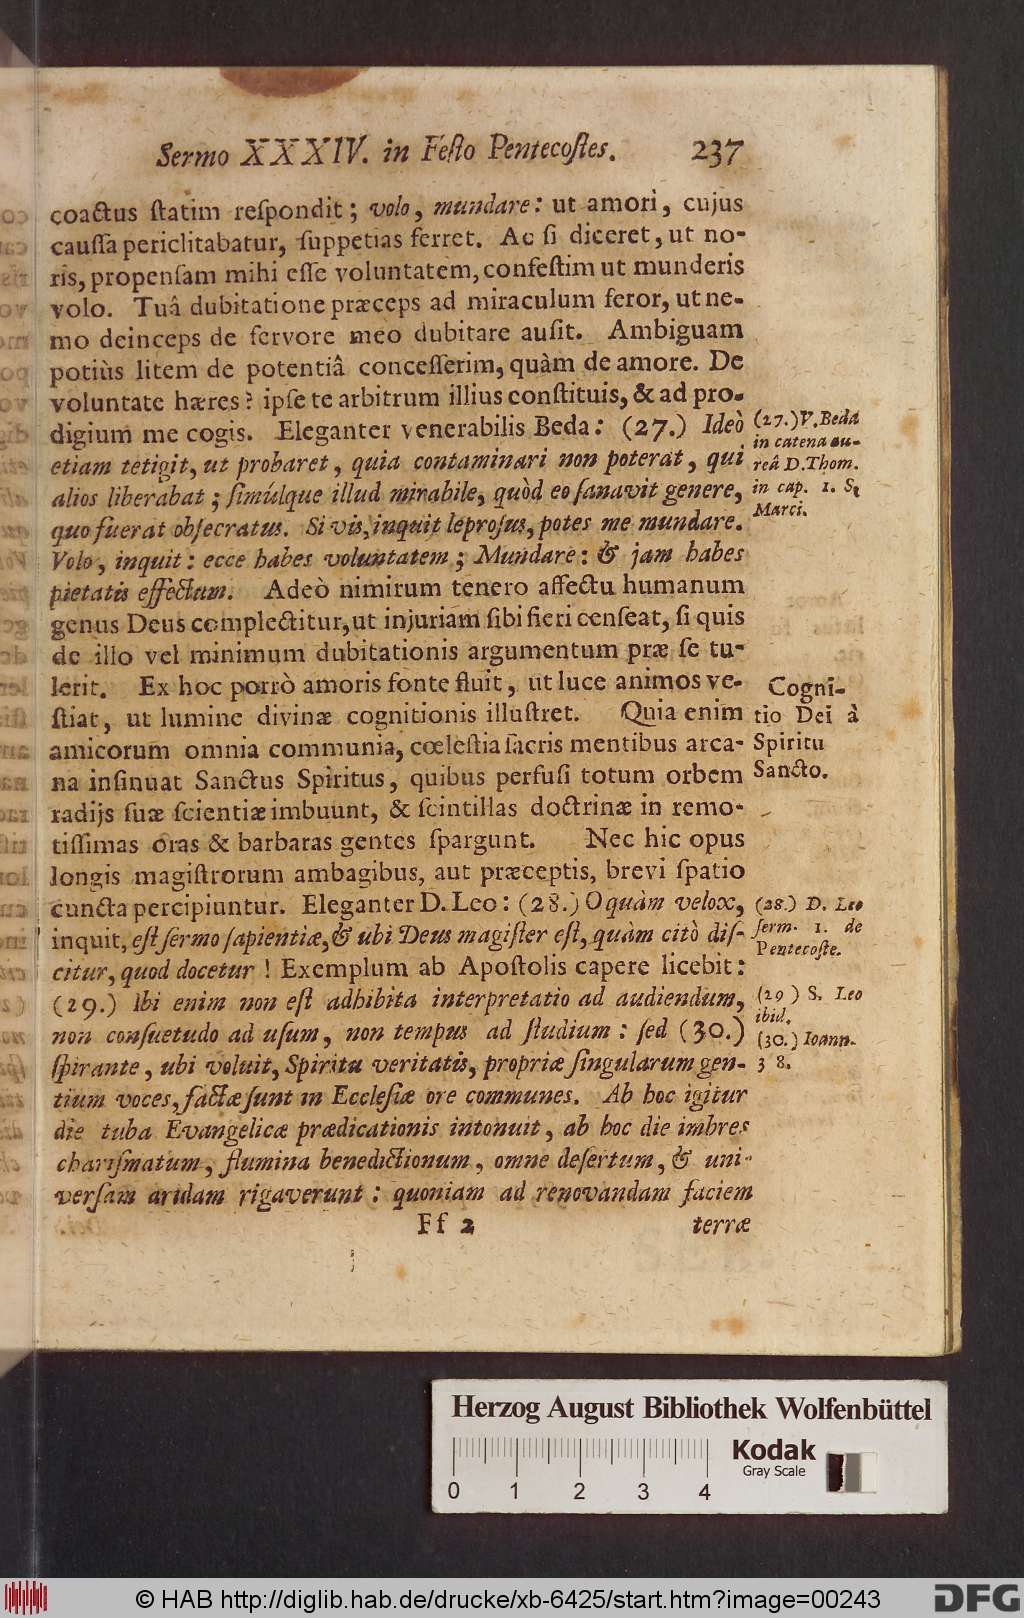 Sermo XXXIV. in Feſto Pentecoſtes. 237
coactus ſtatim reſpondit; volo, mundare: ut amori, cujus
cauſſa periclitabatur, ſuppetias ferret. Ac ſi diceret, ut no-
ris, propenſam mihi eſſe voluntatem, confeſtim ut munderis
volo. Tuâ dubitatione præceps ad miraculum feror, ut ne-
mo deinceps de fervore meo dubitare auſit. Ambiguam
potiùs litem de potentiâ conceſſerim, quàm de amore. De
voluntate hæres? ipſe te arbitrum illius conſtituis, & ad pro-
digium me cogis. Eleganter venerabilis Beda: (27.) Ideò
etiam tetigit, ut probaret, quia contaminari non poterat, qui
alios liberabat; ſimúlque illud mirabile, quòd eo ſanavit genere,
quo fuerat obſecratus. Si vis, inquit leproſus, potes me mundare.
Volo, inquit: ecce habes voluntatem; Mundare: & jam habes
pietatis effectum. Adeò nimirum tenero affectu humanum
genus Deus complectitur, ut injuriam ſibi fieri cenſeat, ſi quis
de illo vel minimum dubitationis argumentum præ ſe tu-
lerit. Ex hoc porrò amoris fonte fluit, ut luce animos ve-
ſtiat, ut lumine divinæ cognitionis illuſtret. Quia enim
amicorum omnia communia, cœleſtia ſacris mentibus arca-
na inſinuat Sanctus Spiritus, quibus perfuſi totum orbem
radijs ſuæ ſcientiæ imbuunt, & ſcintillas doctrinæ in remo-
tiſſimas oras & barbaras gentes ſpargunt. Nec hic opus
longis magiſtrorum ambagibus, aut præceptis, brevi ſpatio
cuncta percipiuntur. Eleganter D. Leo: (28.) O quàm velox,
inquit, eſt ſermo ſapientiæ, & ubi Deus magiſter eſt, quàm citò diſ-
citur, quod docetur! Exemplum ab Apoſtolis capere licebit:
(29.) Ibi enim non eſt adhibita interpretatio ad audiendum,
non conſuetudo ad uſum, non tempus ad ſtudium: ſed (30.)
ſpirante, ubi voluit, Spiritu veritatis, propriæ ſingularum gen-
tium voces, factæ ſunt in Eccleſiæ ore communes. Ab hoc igitur
die tuba Evangelicæ prædicationis intonuit, ab hoc die imbres
chariſmatum, flumina benedictionum, omne deſertum, & uni-
verſam aridam rigaverunt: quoniam ad renovandam faciem
Ff 2 terræ
(27.) V. Beda
in catena au-
reâ D. Thom.
in cap. 1. S.
Marci.
Cogni-
tio Dei à
Spiritu
Sancto.
(28.) D. Leo
ſerm. 1. de
Pentecoſte.
(29) S. Leo
ibid.
(30.) Ioann.
3 8.
Herzog August Bibliothek Wolfenbüttel
0 1 2 3 4
Kodak
Gray Scale
© HAB http://diglib.hab.de/drucke/xb-6425/start.htm?image=00243
DFG